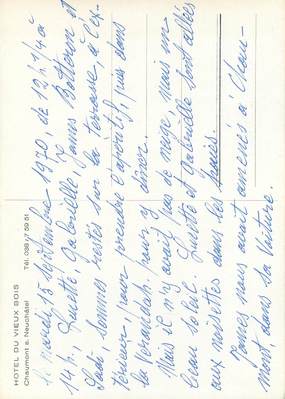 HÔTEL DU VIEUX BOIS
Chaumont s. Neuchâtel Tél. 038 / 7 59 51
Le mardi, 15 septembre 1970, de 12 h 1/4 à
14 h., Ginette, Gabrielle, James Botteron et
moi, sommes restés sur la terrasse, à l'ex-
térieur, pour prendre l'apéritif, puis dans
la Véranda h pour y dîner.
Mais il n'y avait pas de neige, mais un
beau soleil. Ginette et Gabrielle sont allées
aux noisettes dans les
James nous avait amenés à Chau-
mont, dans sa voiture.